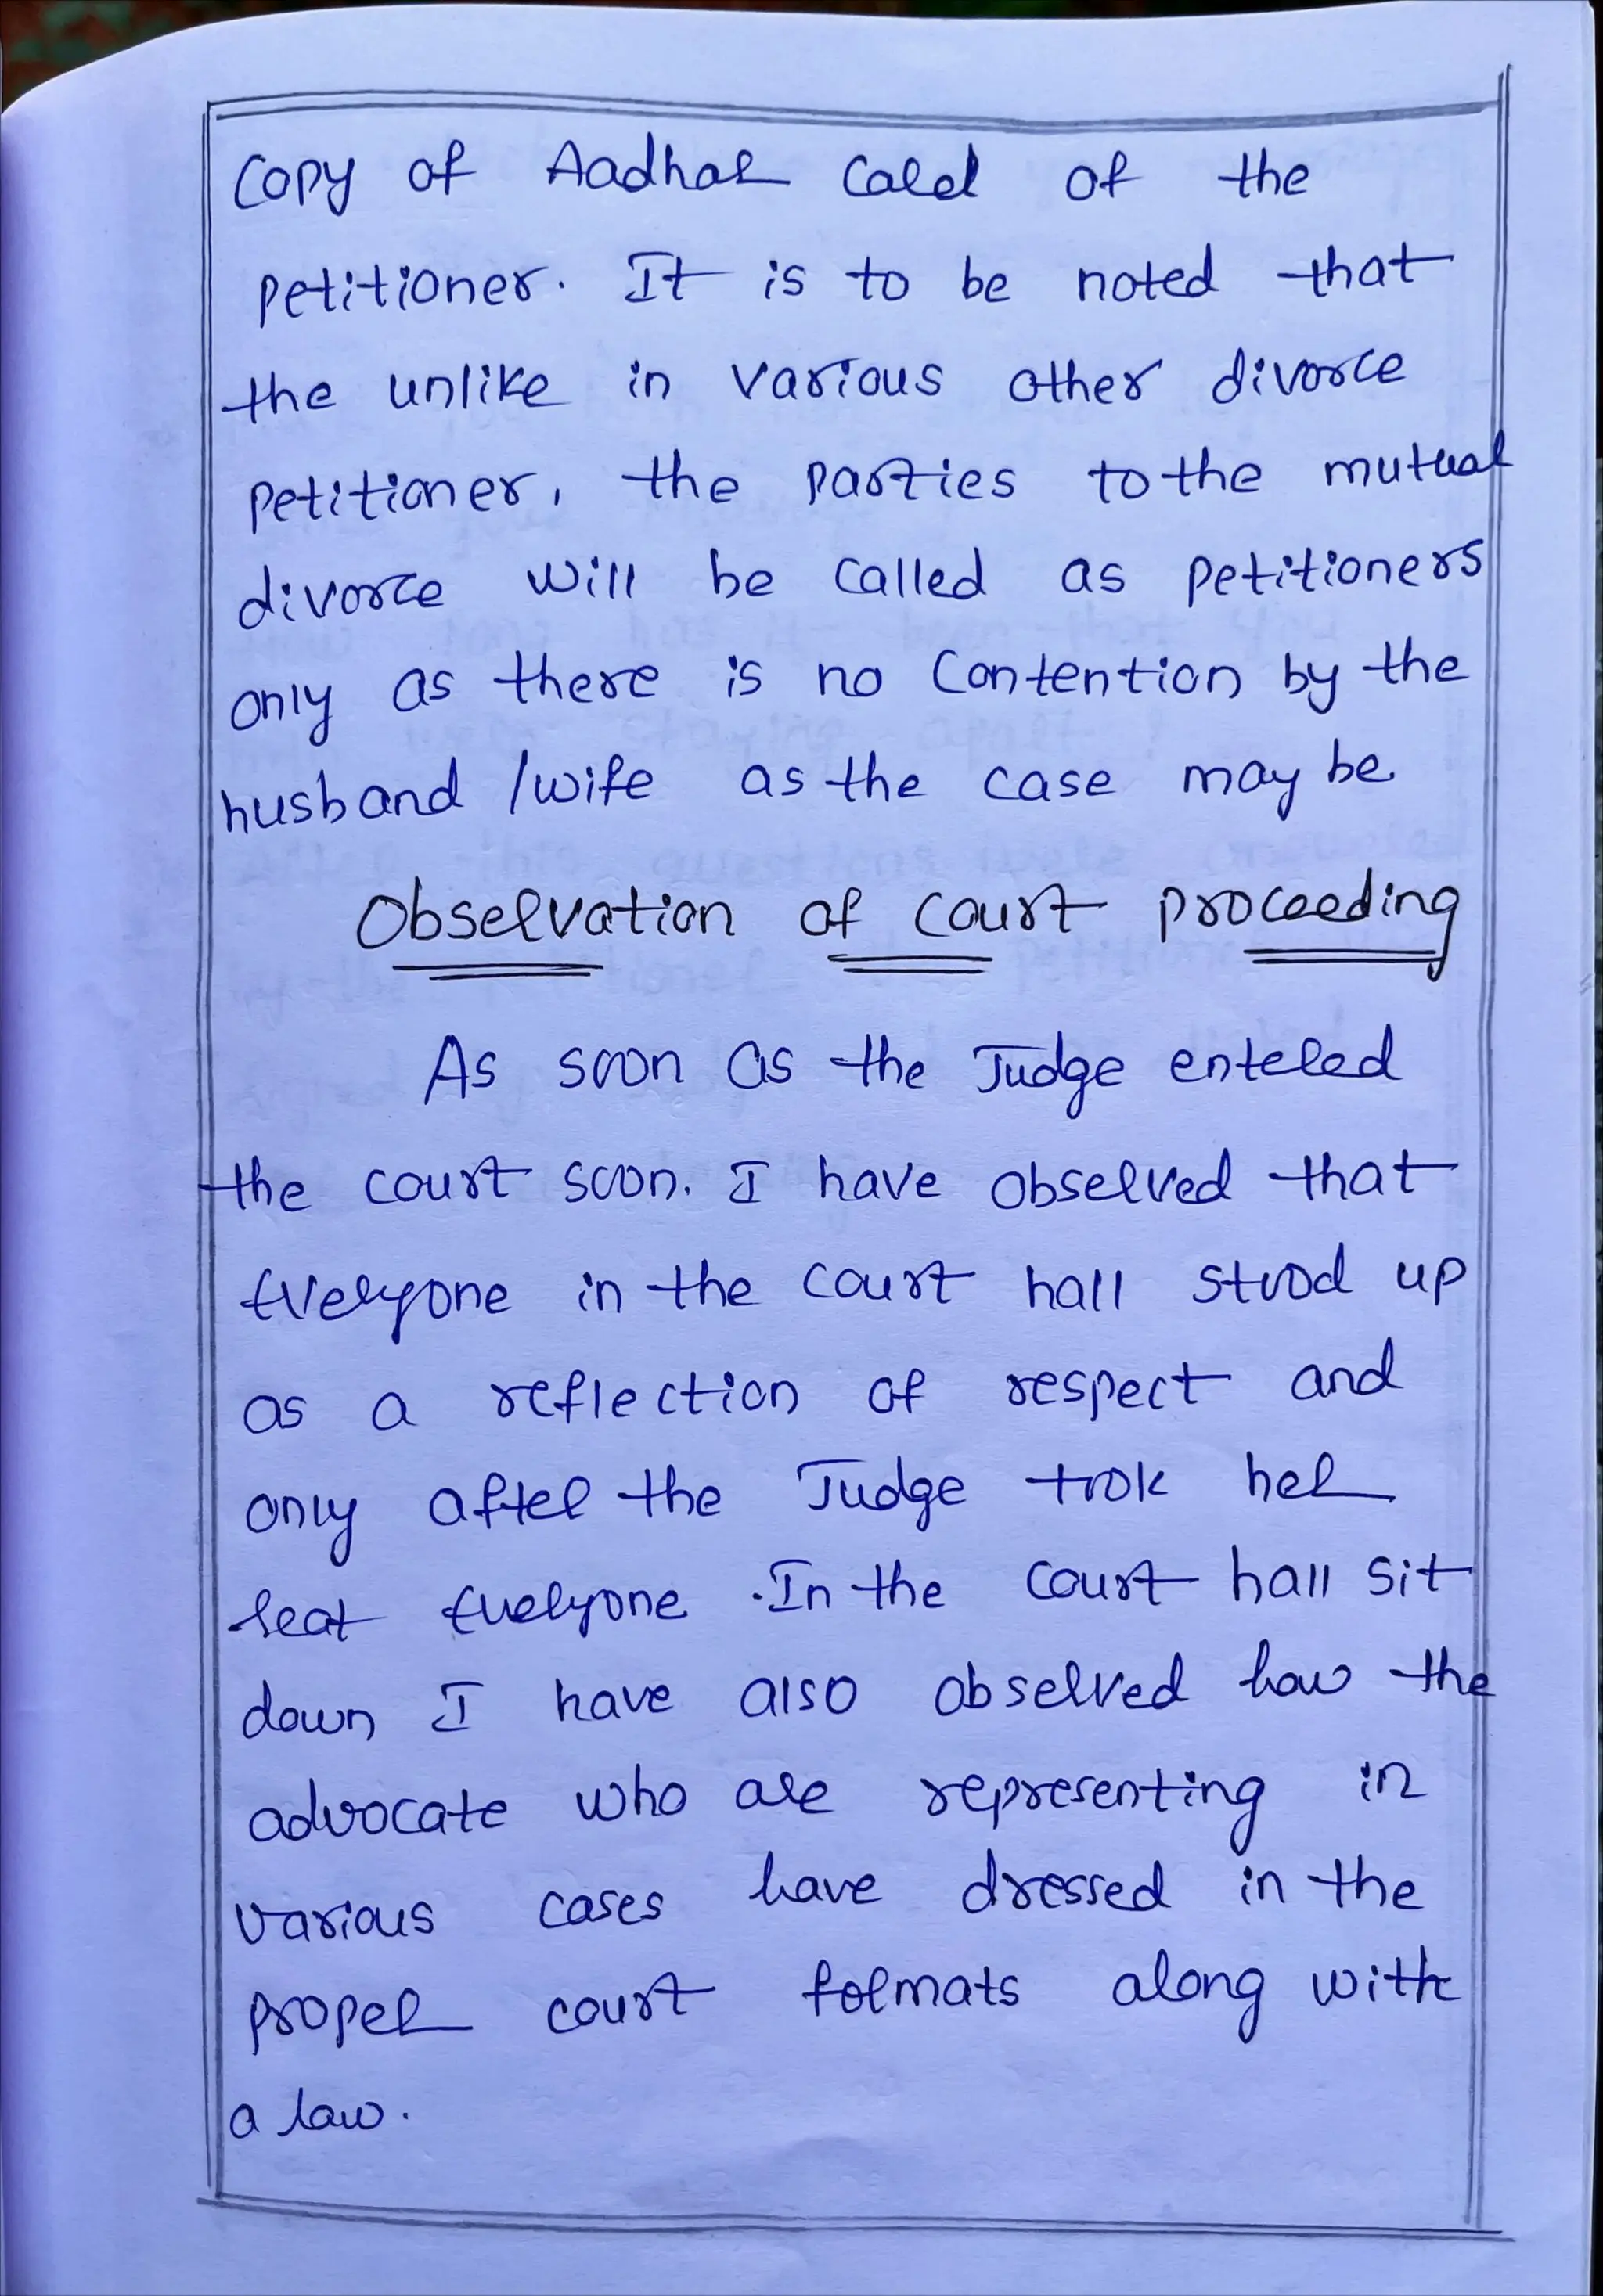 Copy of Aadhar Card of the
petitioner. It is to be noted that
the unlike in various other divorce
petitioner, the parties to the mutual
divorce will be called as petitioners
only as there is no contention by the
husband /wife as the case may be
Observation of court proceeding
As soon as the Judge entered
the court soon. I have observed that
Everyone in the court hall stood up
as a reflection of respect and
only after the Judge took her
seat Everyone. In the court hall sit
down I have also observed how the
advocate who are representing in
various cases have dressed in the
proper court formats along with
a law.